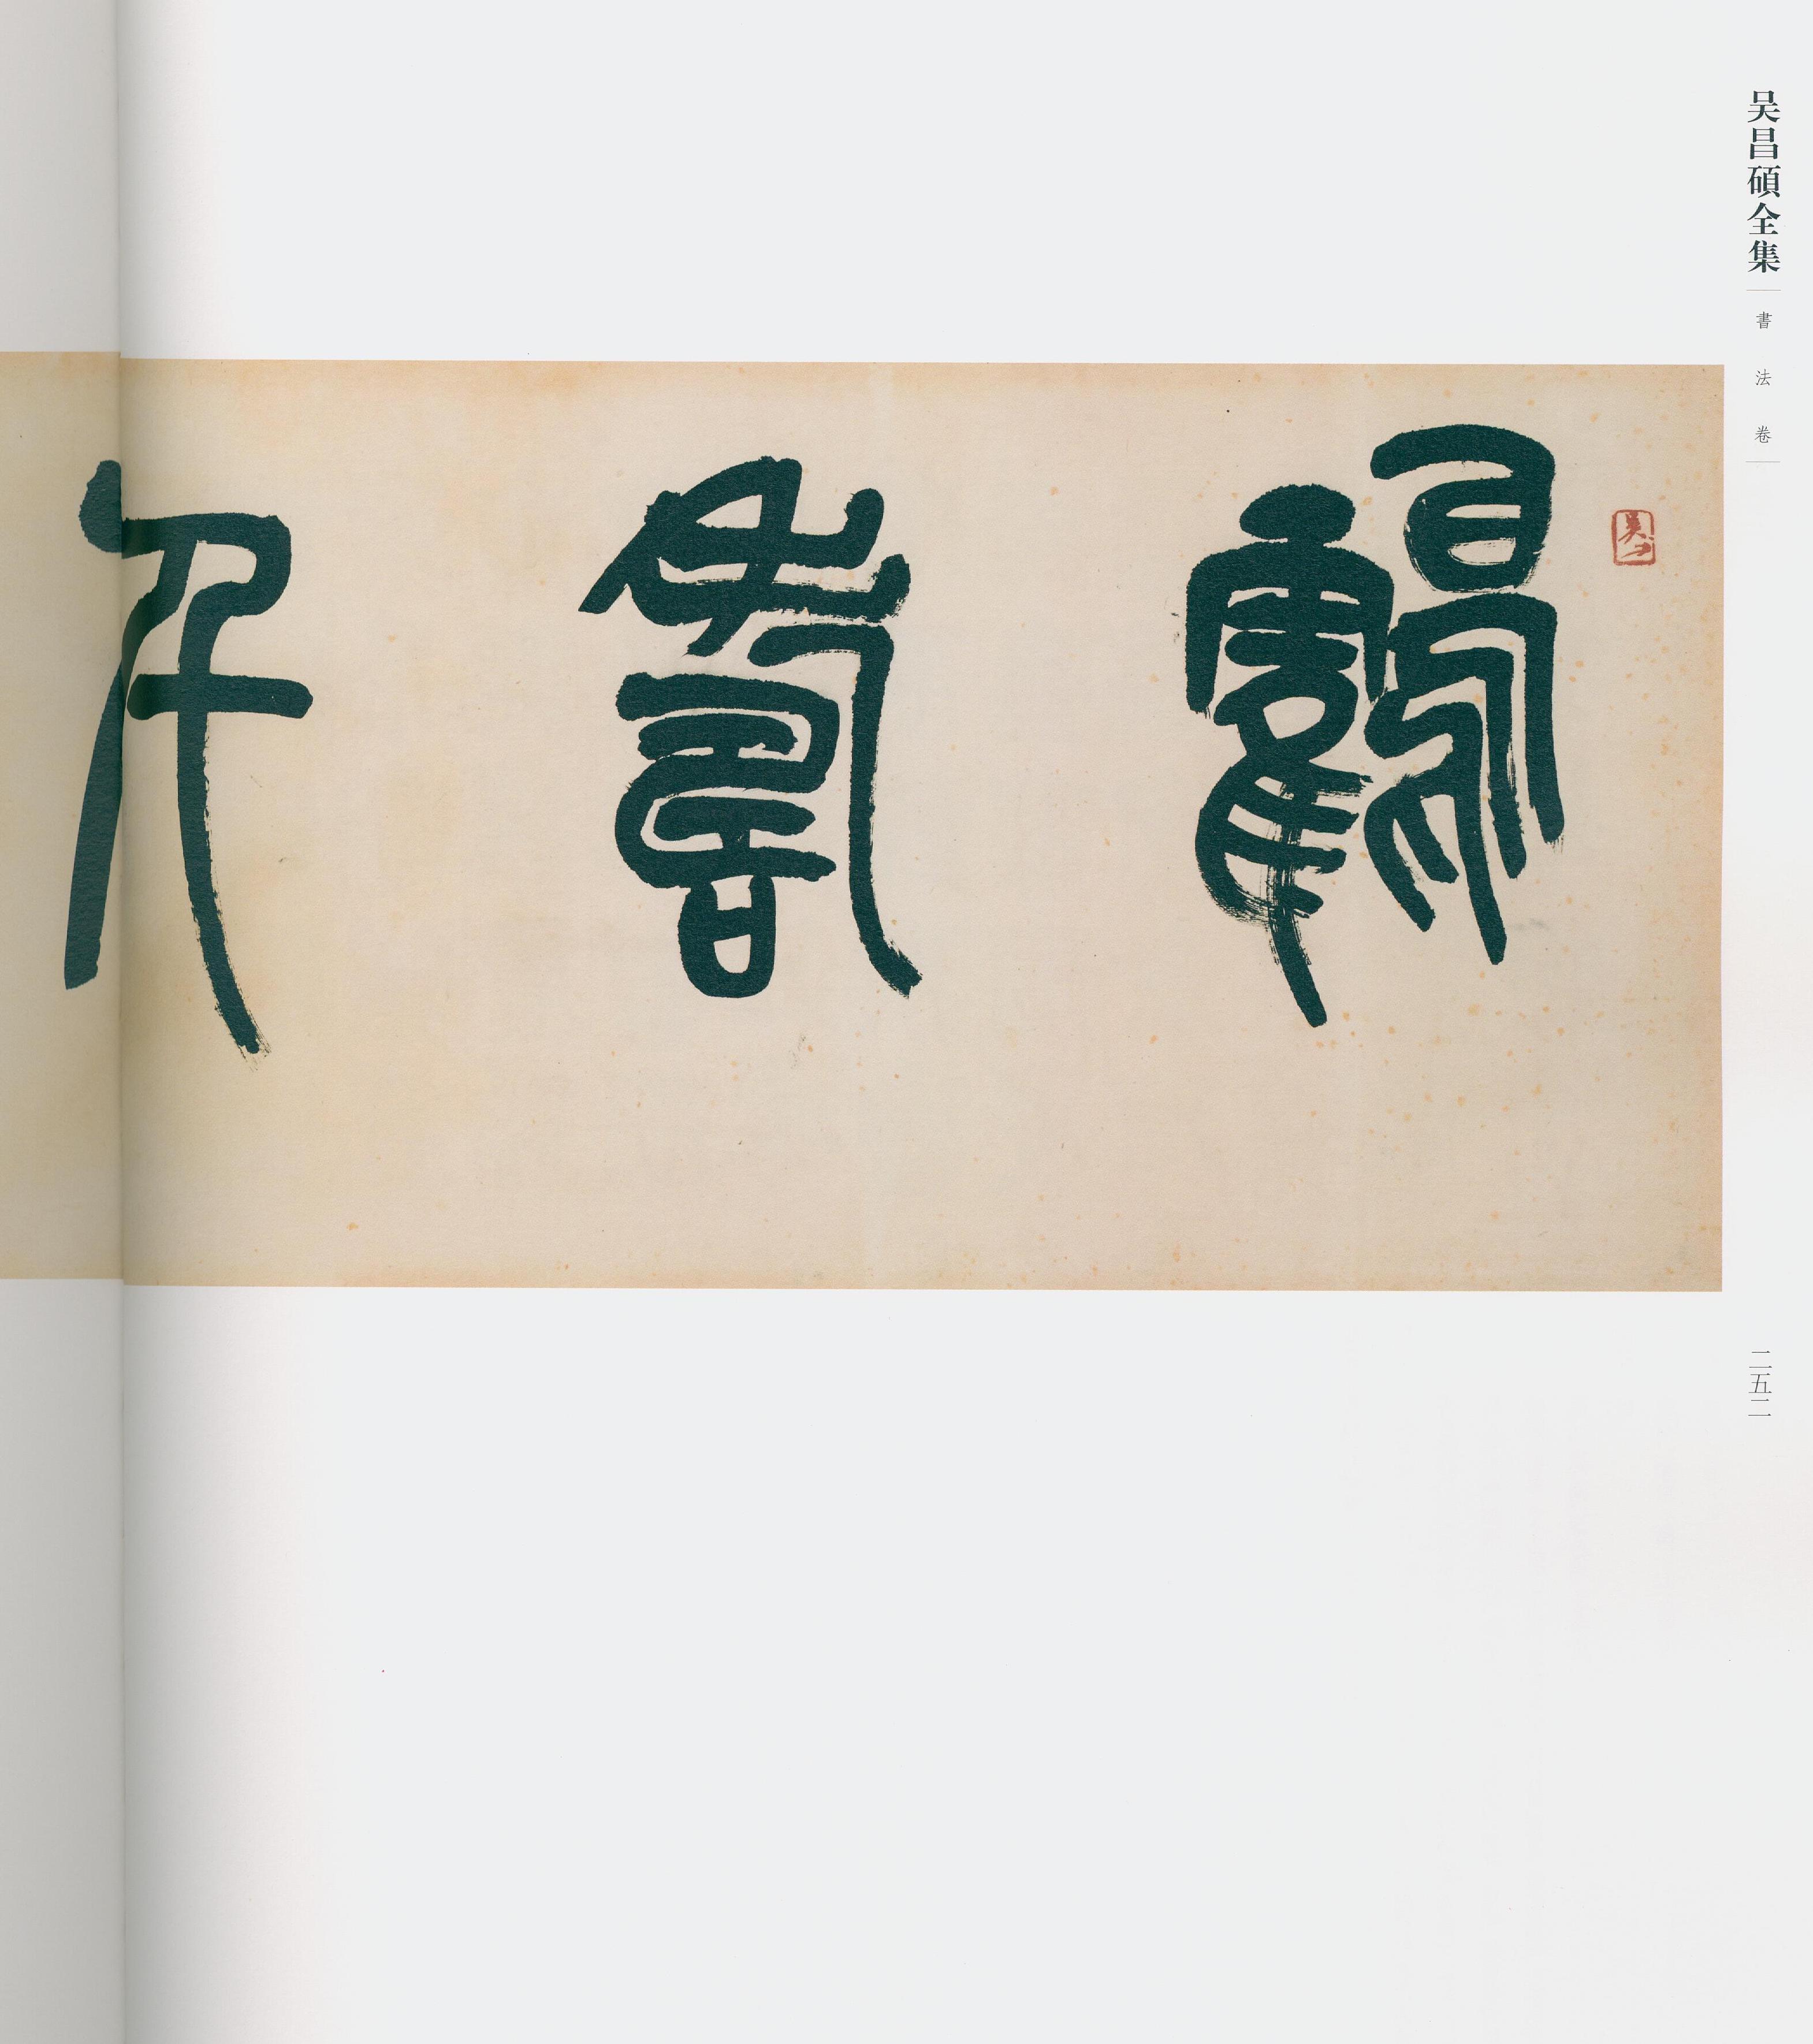 吴昌碩全集
書法卷
鶴壽千
二五二